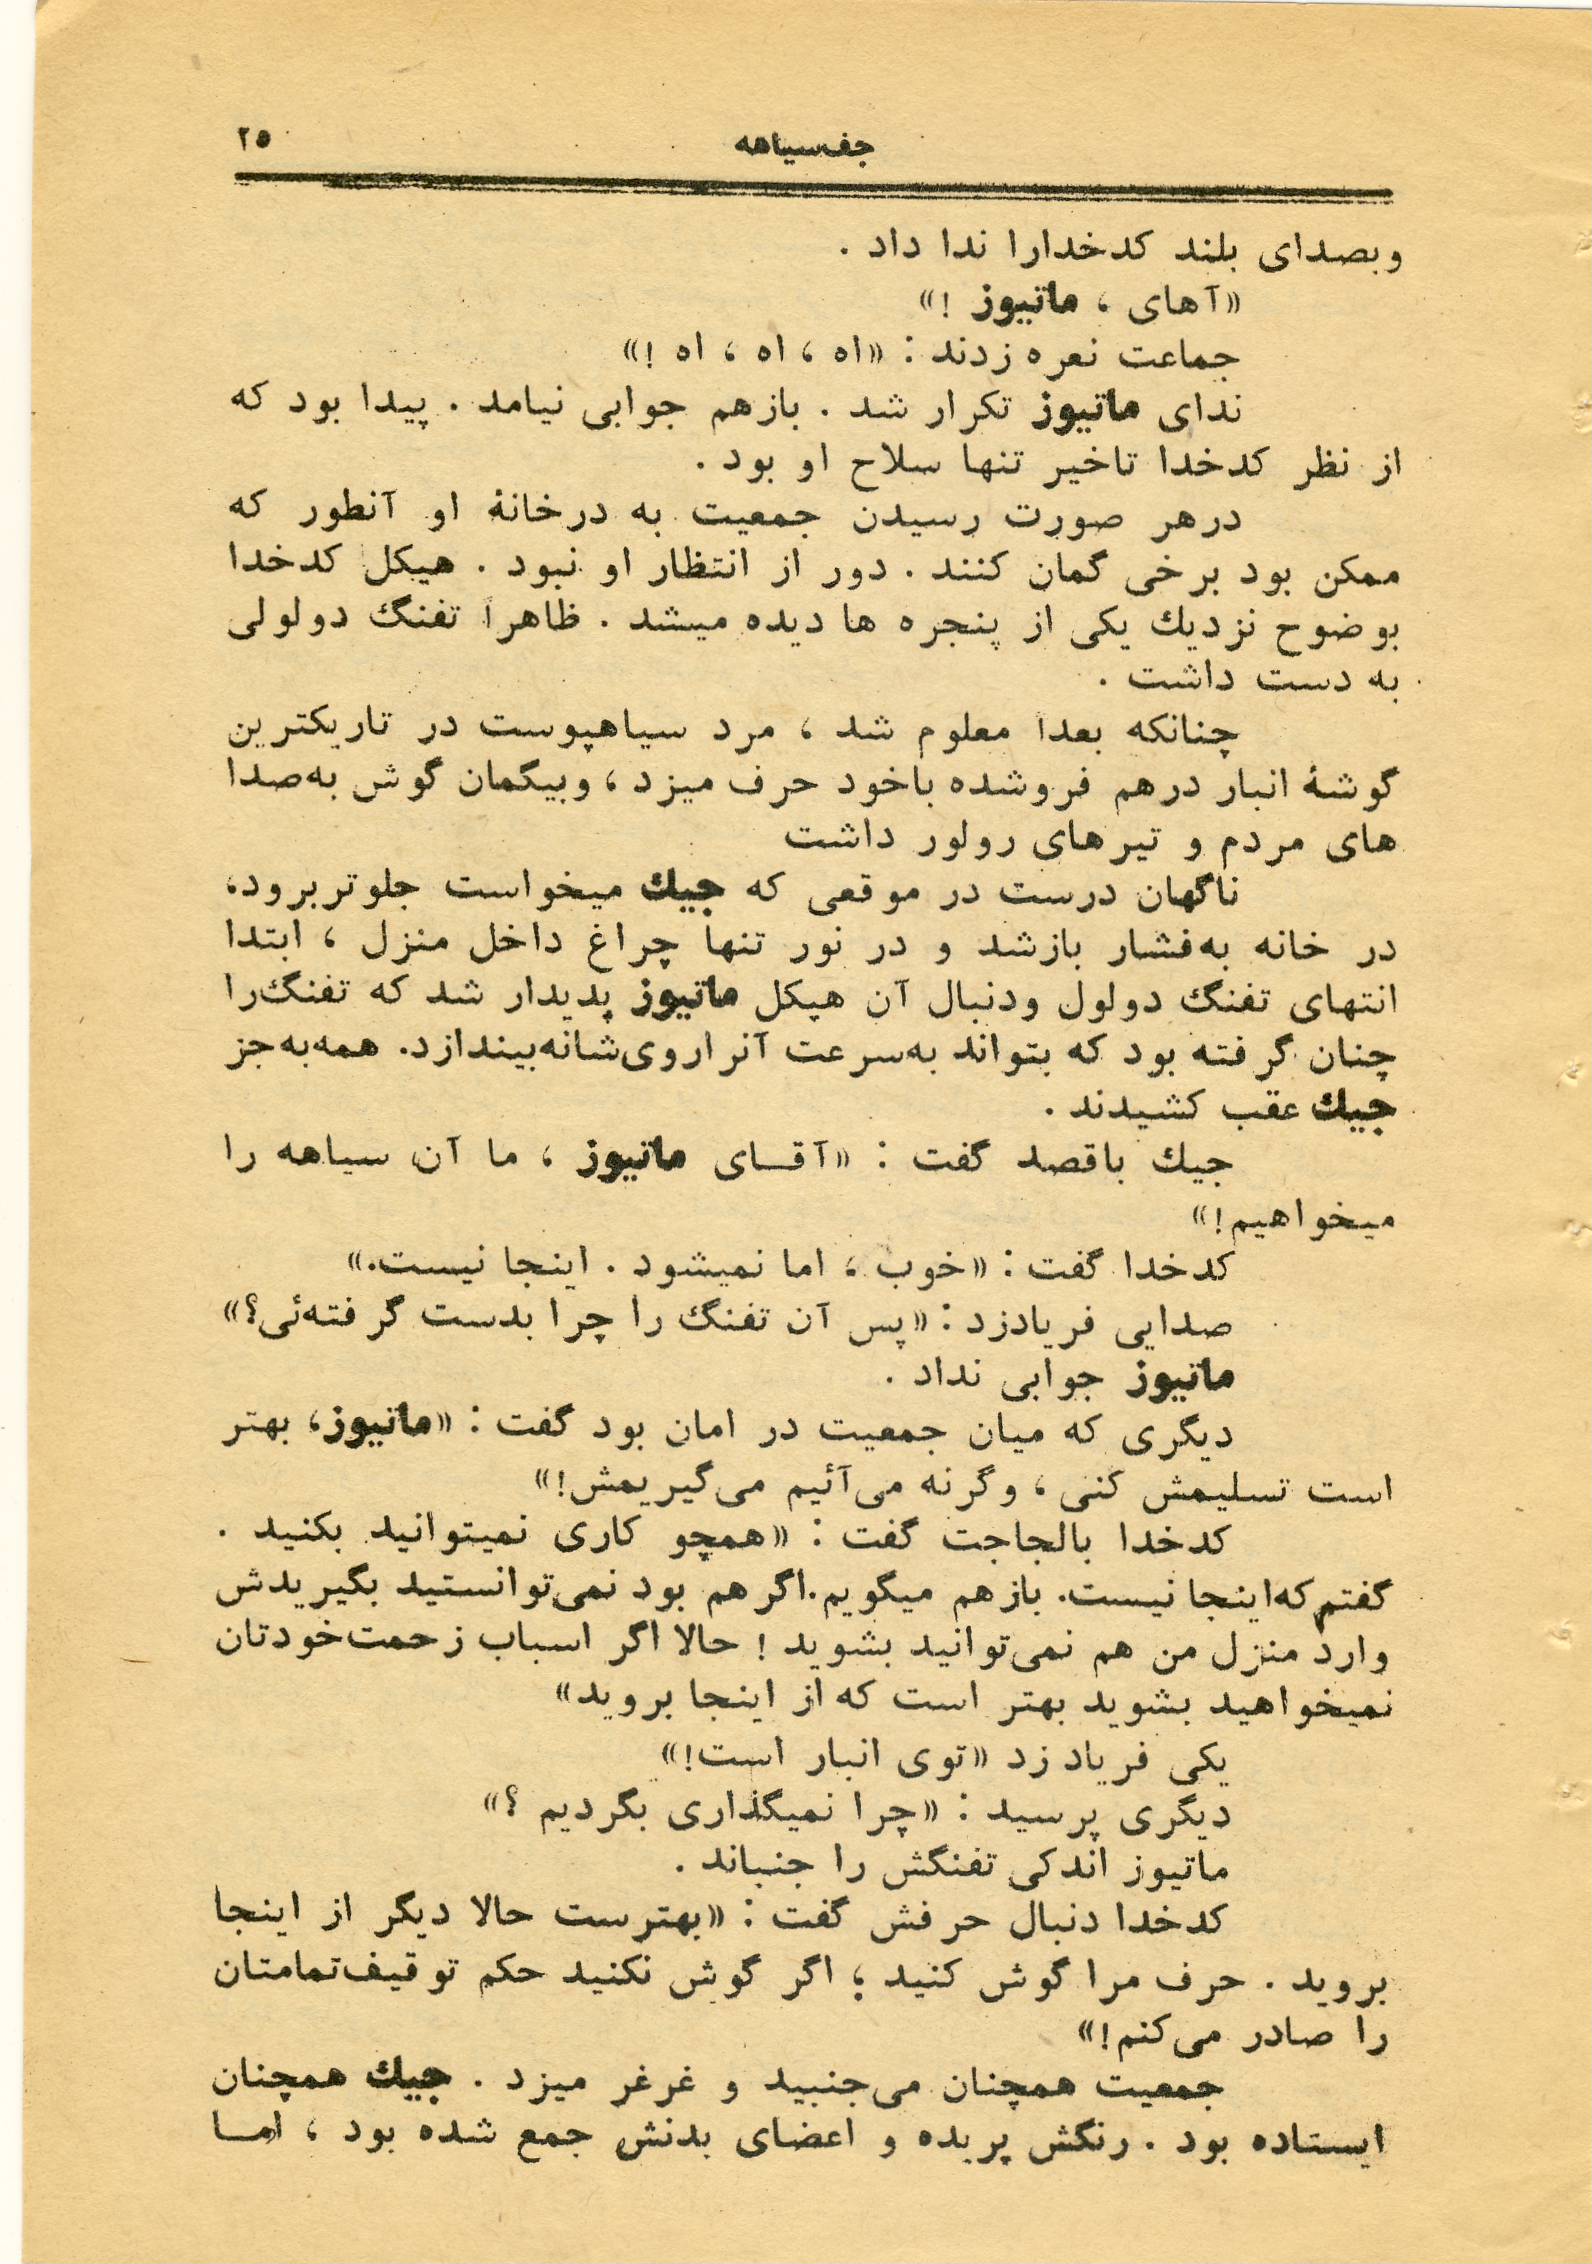 جف‌سیاهه ۲۵
وبصدای بلند کدخدارا ندا داد .
«آهای ، ماتیوز !»
جماعت نعره زدند : «اه ، اه ، اه !»
ندای ماتیوز تکرار شد . بازهم جوابی نیامد . پیدا بود که
از نظر کدخدا تاخیر تنها سلاح او بود .
درهر صورت رسیدن جمعیت به درخانهٔ او آنطور که
ممکن بود برخی گمان کنند . دور از انتظار او نبود . هیکل کدخدا
بوضوح نزدیك یکی از پنجره ها دیده میشد . ظاهراً تفنگ دولولی
به دست داشت .
چنانکه بعداً معلوم شد ، مرد سیاهپوست در تاریکترین
گوشهٔ انبار درهم فروشده باخود حرف میزد ، وبیگمان گوش به‌صدا
های مردم و تیرهای رولور داشت
ناگهان درست در موقعی که جیك میخواست جلوتربرود،
در خانه به‌فشار بازشد و در نور تنها چراغ داخل منزل ، ابتدا
انتهای تفنگ دولول ودنبال آن هیکل ماتیوز پدیدار شد که تفنگ‌را
چنان گرفته بود که بتواند به‌سرعت آنراروی‌شانه‌بیندازد. همه‌به‌جز
جیك عقب کشیدند .
جیك باقصد گفت : «آقـای ماتیوز ، ما آن سیاهه را
میخواهیم!»
کدخدا گفت : «خوب ، اما نمیشود . اینجا نیست.»
صدایی فریادزد : «پس آن تفنگ را چرا بدست گرفته‌ئی؟»
ماتیوز جوابی نداد .
دیگری که میان جمعیت در امان بود گفت : «ماتیوز، بهتر
است تسلیمش کنی ، وگرنه می‌آئیم می‌گیریمش!»
کدخدا بالجاجت گفت : «همچو کاری نمیتوانید بکنید .
گفتم‌که‌اینجا نیست. بازهم میگویم.اگرهم بود نمی‌توانستید بگیریدش
وارد منزل من هم نمی‌توانید بشوید ! حالا اگر اسباب زحمت‌خودتان
نمیخواهید بشوید بهتر است که از اینجا بروید»
یکی فریاد زد «توی انبار است!»
دیگری پرسید : «چرا نمیگذاری بگردیم ؟»
ماتیوز اندکی تفنگش را جنباند .
کدخدا دنبال حرفش گفت : «بهترست حالا دیگر از اینجا
بروید . حرف مرا گوش کنید ؛ اگر گوش نکنید حکم توقیف‌تمامتان
را صادر می‌کنم!»
جمعیت همچنان می‌جنبید و غرغر میزد . جیك همچنان
ایستاده بود . رنگش پریده و اعضای بدنش جمع شده بود ، امـا